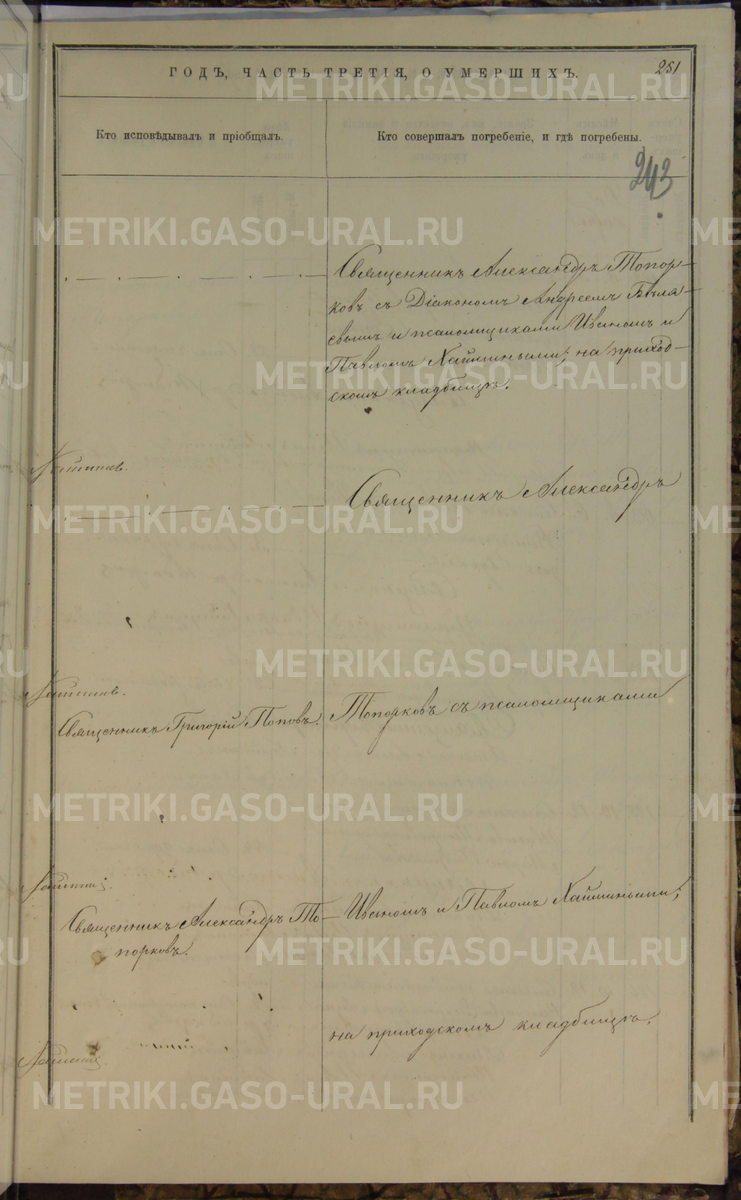 251
ГОДЪ, ЧАСТЬ ТРЕТІЯ, О УМЕРШИХЪ.
Кто исповѣдывалъ и пріобщалъ.
Кто совершалъ погребеніе, и гдѣ погребены.
243
Священникъ Александръ Топор-
ковъ съ Діакономъ Андреемъ
и псаломщиками Иваномъ и
Павломъ на приход-
скомъ кладбищѣ.
Священникъ Александръ
Священникъ Григорій Поповъ.
Топорковъ съ псаломщиками
Священникъ Александръ То-
порковъ.
Иваномъ и Павломъ
на приходскомъ кладбищѣ.
METRIKI.GASO-URAL.RU